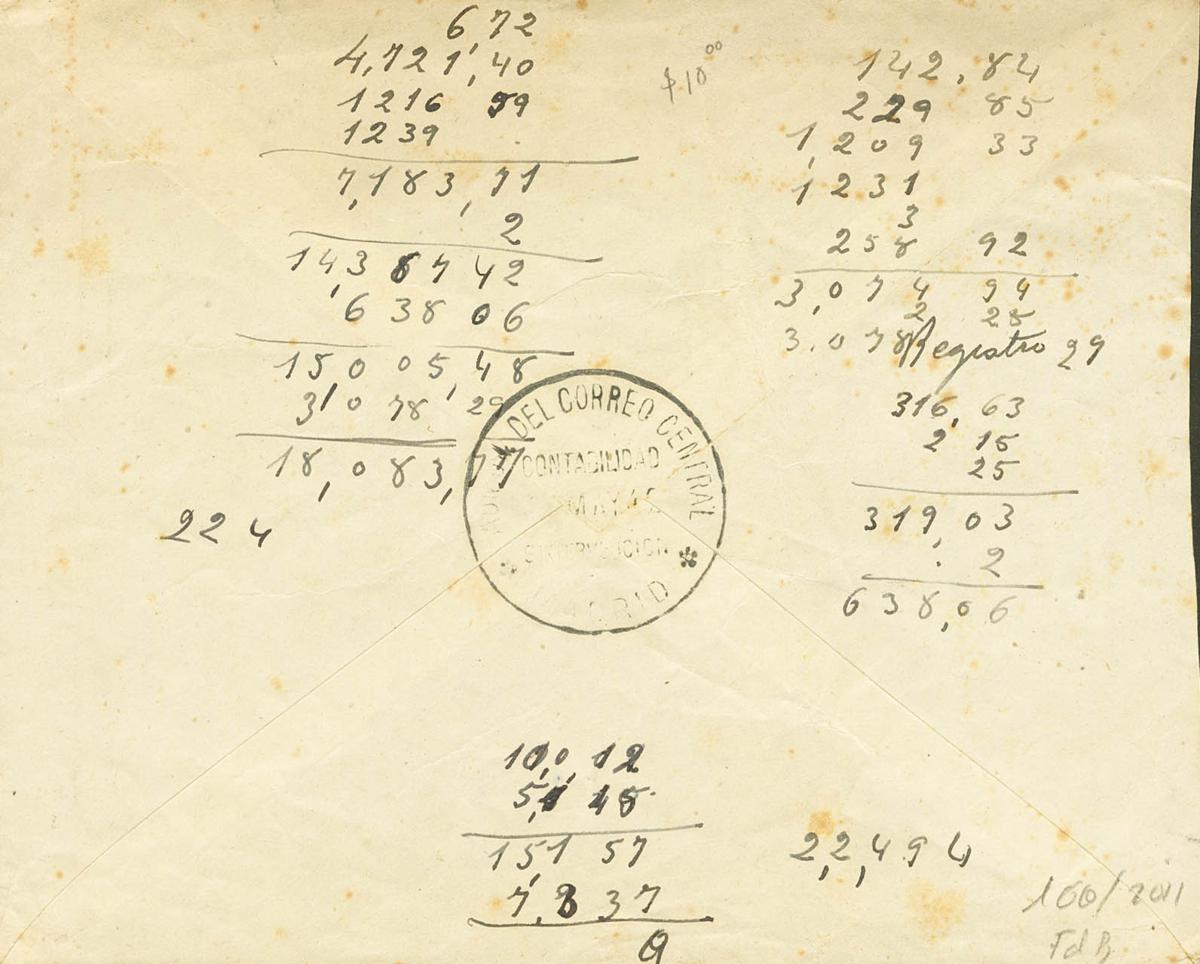 6,72
4,721,40
1216 59
1239
7,183,71
2
14,367 42
638 06
15,005,48
3,078 29
18,083,77
224
$10⁰⁰
142.84
229 85
1,209 33
1231
3
258 92
3,074 94
2 28
3.078 Registro 29
316,63
2 15
25
319,03
2
638,06
DEL CORREO CENTRAL
CONTABILIDAD
MAY
MADRID
10,012
5,145
15,157
7,337
22,494
100/2011
FdB